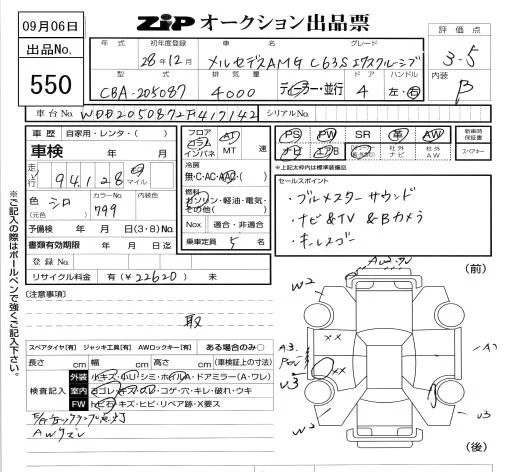 09月06日
ZIP オークション出品票
出品No.
550
評価点
3-5
内装
B
年式 初年度登録 車名 グレード
28年12月 メルセデスAMG C63S エクスクルーシブ
型式 排気量 ドア ハンドル
CBA-205087 4000 ディーラー・並行 4 左・右
車台No. WDD2050872F417142 シリアルNo.
車歴 自家用・レンタ・( )
車検 年 月
走行 94,128 マイル
色 シロ (元色) カラーNo. 799 内装色
予備検 年 月 日(3・8)No.
書類有効期限 年 月 日迄
登録No.
リサイクル料金 有(¥22620) 未
フロア コラム インパネ AT MT 速
冷房 無・C・AC・AAC・( )
燃料 ガソリン・軽油・電気・その他( )
Nox 適合・非適合
乗車定員 5 名
PS PW SR 革 AW
ナビ エアB 社外ナビ 社外AW
新車時保証書
スペアキー
*上記太枠内は標準装備品
セールスポイント
・ブルメスターサウンド
・ナビ&TV &Bカメラ
・キーレスゴー
※ご記入の際はボールペンで強くご記入下さい。
[注意事項]
取
スペアタイヤ[有] ジャッキ工具[有] AWロックキー[有] ある場合のみ○
長さ cm 幅 cm 高さ cm (車検証上の寸法)
検査記入
外装 小キズ・小U・シミ・ホイルA・ドアミラー(A・ワレ)
室内 ヨゴレ・キズ・スレ・コゲ・穴・キレ・破れ・ウキ
FW トビ石・キズ・ヒビ・リペア跡・X要ス
(前)
W2
××
A3
××
U3
W2
U3
(後)